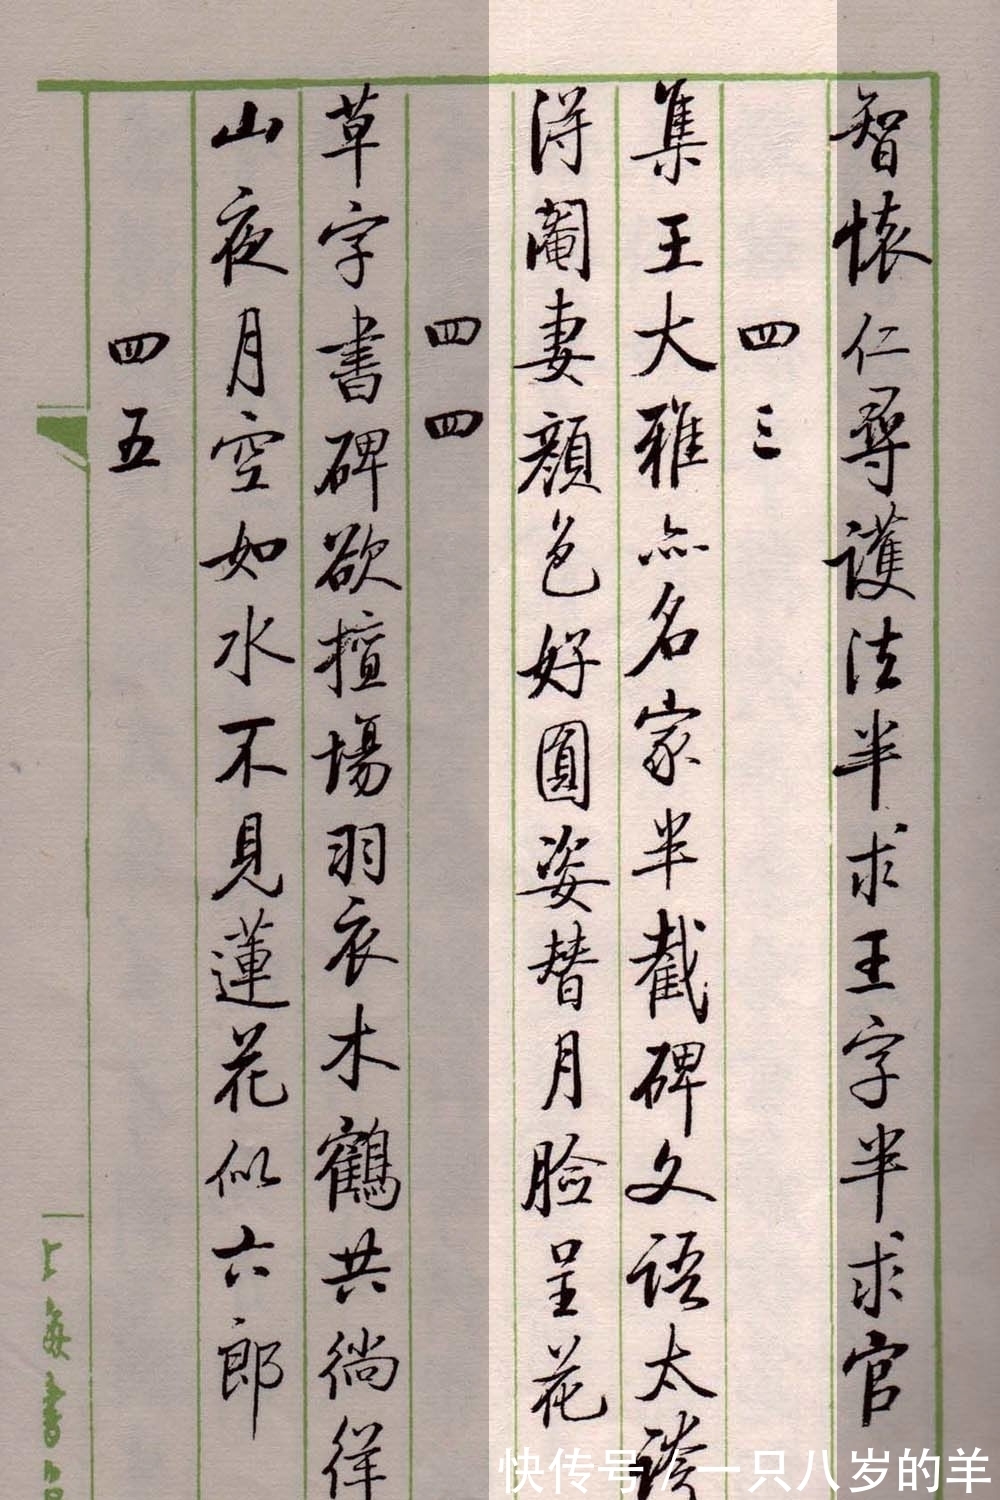 智懷仁尋護法半求王字半求官
四三
集王大雅亦名家半截碑文語太誇
浔閹妻顔色好圓姿替月臉呈花
四四
草字書碑欲擅場羽衣木鶴共徜徉
山夜月空如水不見蓮花似六郎
四五
上海書
快传号/一只八岁的羊